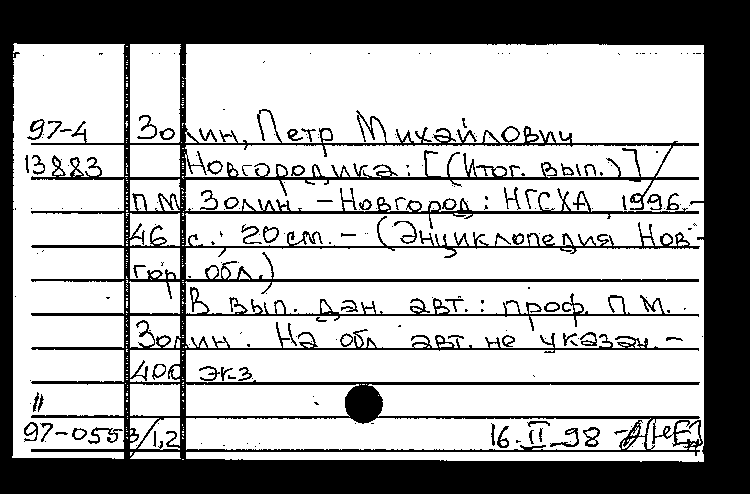 97-4 Золин, Петр Михайлович
13883 Новгородика: [(Итог. вып.)] /
П.М. Золин. - Новгород: НГСХА, 1996. -
46 с.; 20 см. - (Энциклопедия Нов-
гор. обл.)
В вып. дан. авт.: проф. П.М.
Золин. На обл. авт. не указан. -
400 экз.
"
97-0553/1,2 16.II.98